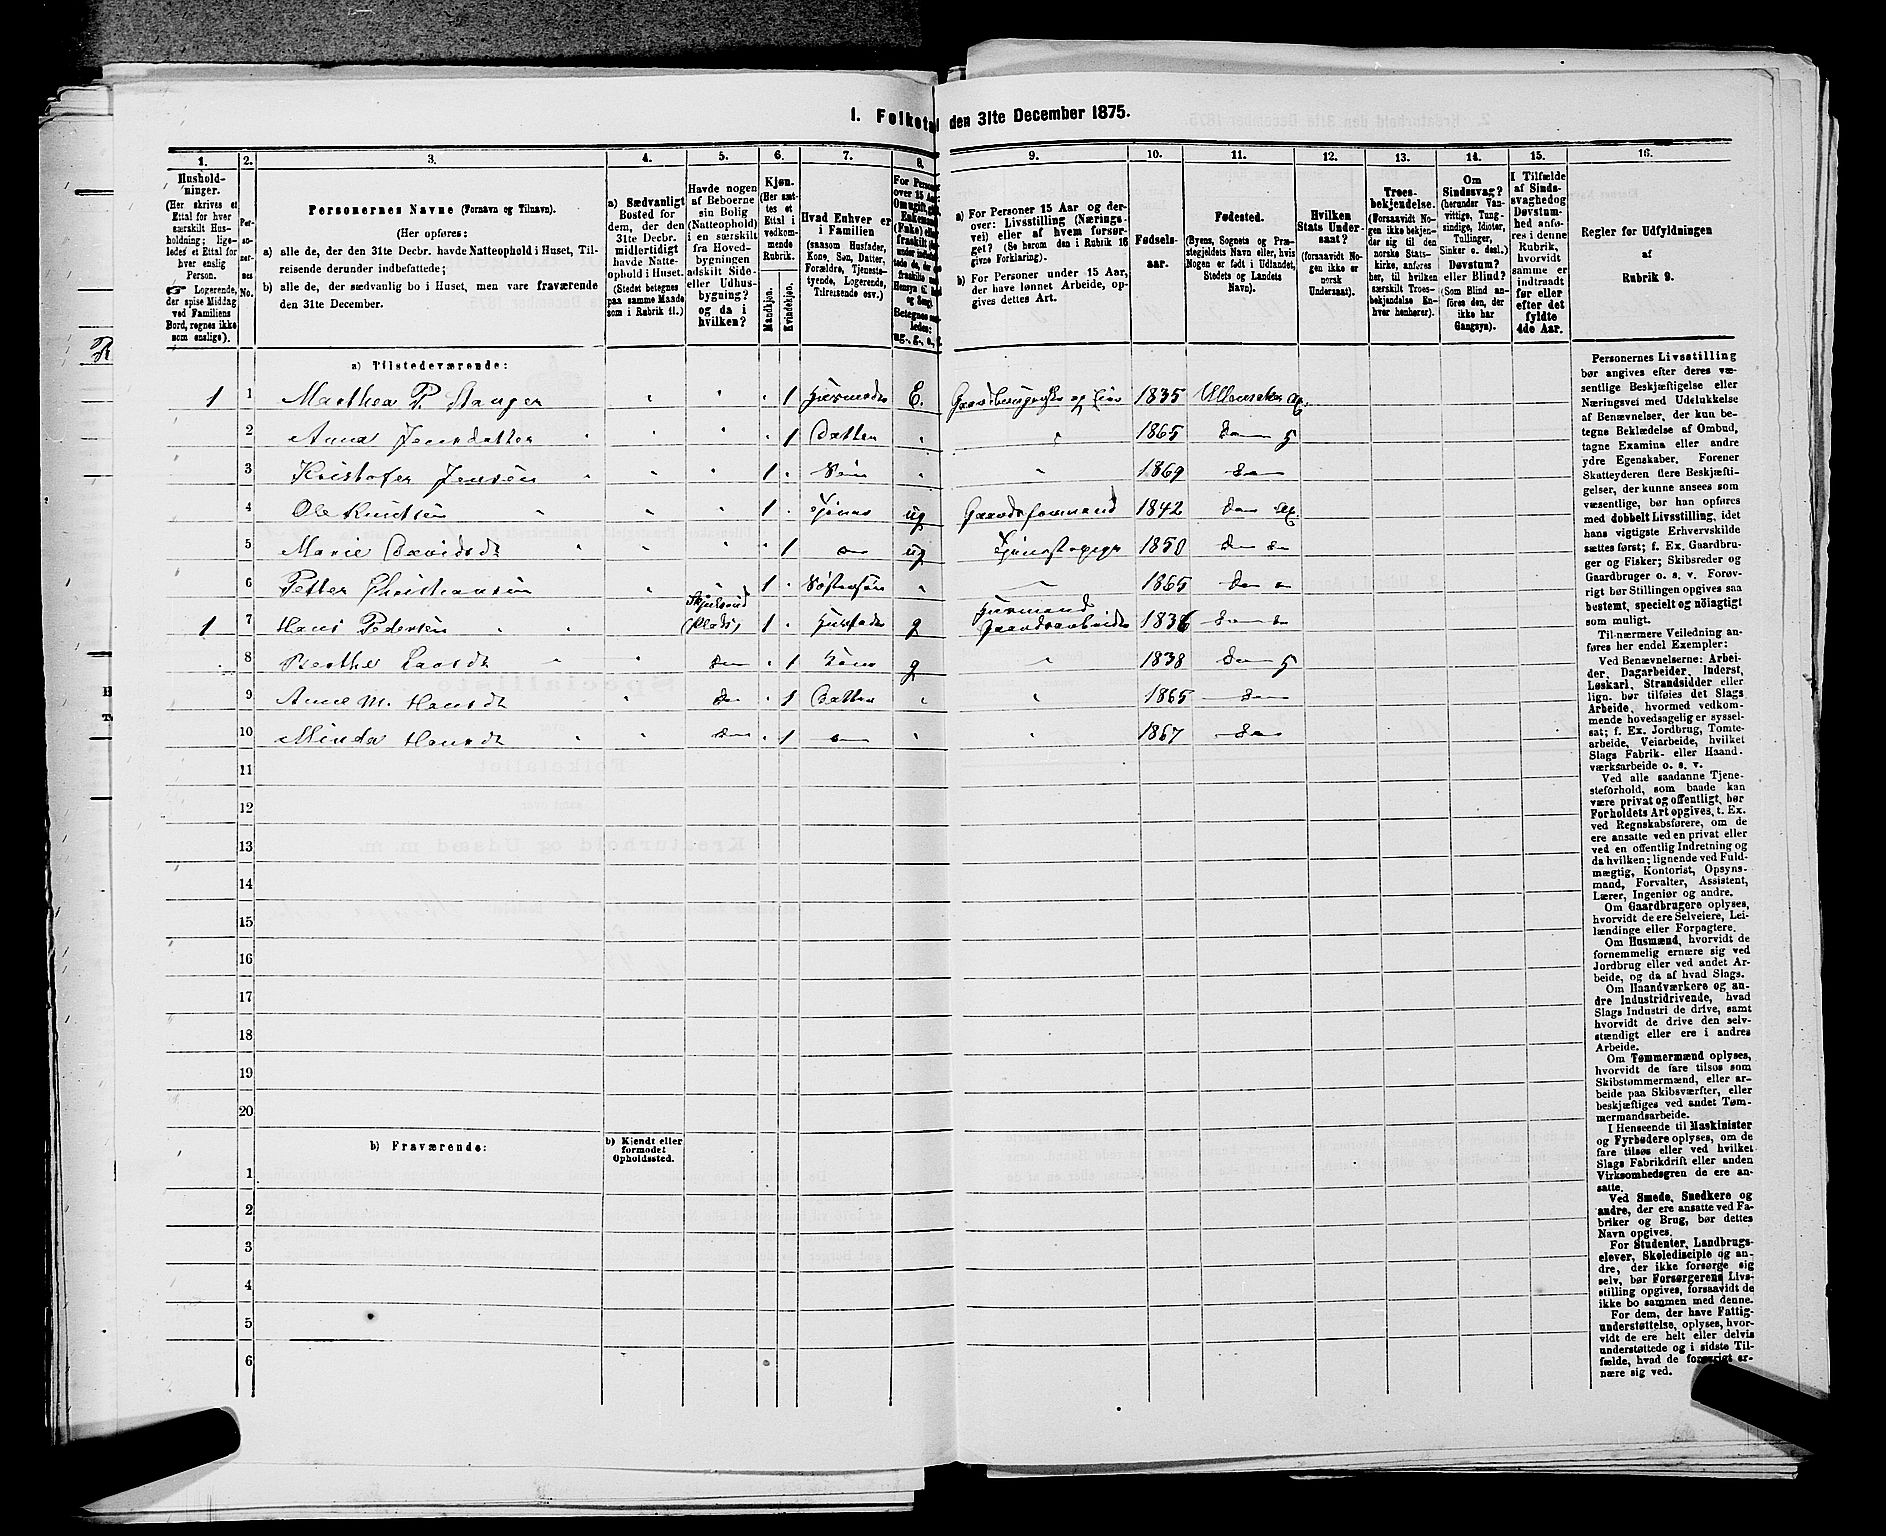 1. Folketal den 31te December 1875.
1. 2. 3. 4. 5. 6. 7. 8. 9. 10. 11. 12. 13. 14. 15. 16.
Hushold-
ninger.
(Her skrives et
Ettal for hver
særskilt Hus-
holdning; lige-
ledes et Ettal for
hver enslig
Person.
Logerende,
der spise Middag
ved Familiens
Bord, regnes ikke
som enslige).
Per-
so-
ner-
nes
No.
Personernes Navne (Fornavn og Tilnavn).
(Her opføres:
a) alle de, der den 31te Decbr. havde Natteophold i Huset, Til-
reisende derunder indbefattede;
b) alle de, der sædvanlig bo i Huset, men vare fraværende
den 31te December.
a) Sædvanligt
Bosted for
dem, der den
31te Decbr.
midlertidigt
havde Natte-
ophold i Huset.
(Stedet betegnes
paa samme Maade
som i Rubrik 11.)
Havde nogen
af Beboerne
sin Bolig
(Natteophold)
i en særskilt
fra Hoved-
bygningen
adskilt Side-
eller Udhus-
bygning?
og da i
hvilken?
Kjøn.
(Her sæt-
tes et
Ettal i
vedkom-
mende
Rubrik.
Mandkjøn.
Kvindekjøn.
Hvad Enhver er
i Familien
(saasom Husfader,
Kone, Søn, Datter,
Forældre, Tjeneste-
tyende, Logerende,
Tilreisende osv.)
For Personer
over 15 Aar:
a) For Personer 15 Aar og der-
over: Livsstilling (Nærings-
vei) eller af hvem forsør-
get? (Se herom den i Rubrik 16
givne Forklaring).
b) For Personer under 15 Aar,
der have lønnet Arbeide, op-
gives dettes Art.
Fødsels-
aar.
Fødested.
(Byens, Sognets og Præ-
stegjeldets Navn eller, hvis
Nogen er født i Udlandet,
Stedets og Landets
Navn).
Hvilken
Stats Under-
saat?
(forsaavidt No-
gen ikke er
norsk
Undersaat).
Troes-
bekjendelse.
(Forsaavidt No-
gen ikke bekjen-
der sig til den
norske Stats-
kirke, anføres
her, til hvilken
særskilt Troes-
bekjendelse En-
hver henhører).
Om
Sindssvag?
(herunder Van-
vittige, Tung-
sindige, Idioter,
Tullinger,
Sinker o. desl.)
Døvstum?
eller Blind?
(Som Blind an-
føres den, der
ikke har
Gangsyn).
I Tilfælde
af Sinds-
svaghed og
Døvstum-
hed anfø-
res i denne
Rubrik,
hvorvidt
samme er
indtraadt
før eller
efter det
fyldte
4de Aar.
Regler for Udfyldningen
af
Rubrik 9.
a) Tilstedeværende:
1 1 Marthea P. Stanger " " " 1 Huusmoder E. 1835 Ullensaker
2 Anne Jensdatter " " " 1 Datter " " 1865 do 5
3 Kristofer Jensen " " 1 " Søn " " 1869 do
4 Ole Knudsen " " 1 " Tjener ug Gaardsformand 1842 do
5 Marie Davidsdt " " " 1 do ug Tjenestepige 1850 do do
6 Petter Christiansen " " 1 " Søstersøn " " 1865 do
1 7 Hans Pedersen (Plads) 1 " Husfader g Huusmand Gaardsarbeider 1836 do
8 Berthe Larsdt " do " 1 Kone g " 1838 do 5
9 Anne M. Hansdt " do " 1 Datter " " 1865 do
10 Minda Hansdt " do " 1 do " " 1867 do
11
12
13
14
15
16
17
18
19
20
b) Fraværende:
b) Kjendt eller
formodet
Opholdssted.
1
2
3
4
5
6
Personernes Livsstilling
bør angives efter deres væ-
sentlige Beskjæftigelse eller
Næringsvei med Udelukkelse
af Benævnelser, der kun be-
tegne Beklædelse af Ombud,
tagne Examina eller andre
ydre Egenskaber. Forener
Skatteyderen flere Beskjæfti-
gelser, der kunne ansees som
væsentlige, bør han opføres
med dobbelt Livsstilling, idet
hans vigtigste Erhvervskilde
sættes først; f. Ex. Gaardbru-
ger og Fisker; Skibsreder og
Gaardbruger o. s. v. Forøv-
rigt bør Stillingen opgives saa
bestemt, specielt og nöiagtigt
som muligt.
Til nærmere Veiledning an-
føres her endel Exempler:
Ved Benævnelserne: Arbei-
der, Dagarbeider, Inderst,
Løskarl, Strandsidder eller
lign. bør tilføies det Slags
Arbeide, hvormed vedkom-
mende hovedsagelig er syssel-
sat; f. Ex. Jordbrug, Tomte-
arbeide, Veiarbeide, hvilket
Slags Fabrik- eller Haand-
værksarbeide o. s. v.
Ved alle saadanne Tjene-
steforhold, som baade kan
være privat og offentligt, bør
Forholdets Art opgives, t. Ex.
ved Regnskabsførere, om de
ere ansatte ved en privat eller
ved en offentlig Indretning og
da hvilken; lignende ved Fuld-
mægtig, Kontorist, Opsyns-
mand, Forvalter, Assistent,
Lærer, Ingeniør og andre.
Om Gaardbrugere oplyses,
hvorvidt de ere Selveiere, Lei-
lændinge eller Forpagtere.
Om Husmænd, hvorvidt de
fornemmelig ernære sig ved
Jordbrug eller ved andet Ar-
beide, og da af hvad Slags.
Om Haandværkere og an-
dre Industridrivende, hvad
Slags Industri de drive, samt
hvorvidt de drive den selv-
stændigt eller ere i andres
Arbeide.
Om Tømmermænd oplyses,
hvorvidt de fare tilsøs som
Skibstømmermænd, eller ar-
beide paa Skibsværfter, eller
beskjæftiges ved andet Tøm-
mermandsarbeide.
I Henseende til Maskinister
og Fyrbødere oplyses, om de
fare tilsøs eller ved hvilket
Slags Fabrikdrift eller anden
Virksomhedsgren de ere an-
satte.
Ved Smede, Snedkere og
andre, der ere ansatte ved Fa-
briker og Brug, bør dettes
Navn opgives.
For Studenter, Landbrugs-
elever, Skoledisciple og an-
dre, der ikke forsørge sig
selv, bør Forsørgerens Livs-
stilling opgives, forsaavidt de
ikke bo sammen med denne.
For dem, der have Fattig-
understøttelse, oplyses, hvor-
vidt de ere helt eller delvis
understøttede og i sidste Til-
fælde, hvad de forøvrigt er-
nære sig ved.